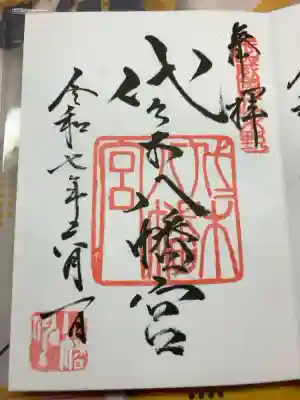 奉拝
代々木八幡宮
代々木八幡宮
令和七年六月一日